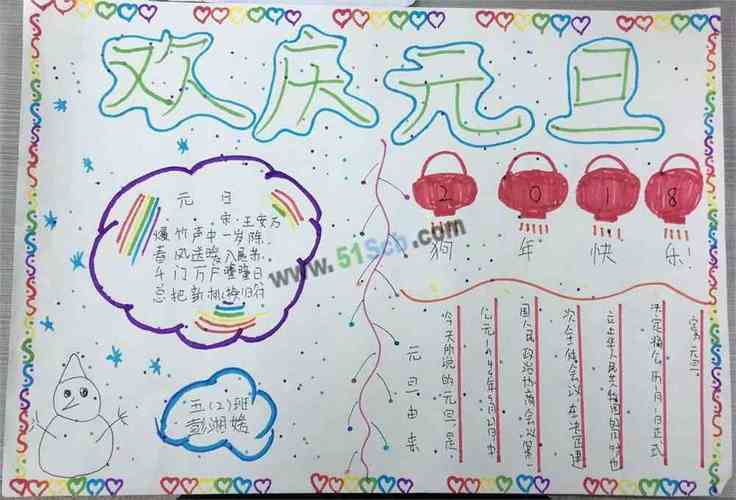 欢庆元旦
元旦
宋 王安石
爆竹声中一岁除
春风送暖入屠苏
千门万户瞳瞳日
总把新桃换旧符
五(2)班
彭湘媛
2018
狗年快乐!
元旦由来
今天所说的元旦,是
公元1949年9月27日,中
国人民政治协商会议第一
次全体会议,在决定建
立中华人民共和国的同时,也
决定将公历1月1日正式
定为元旦。
www.51Scb.com